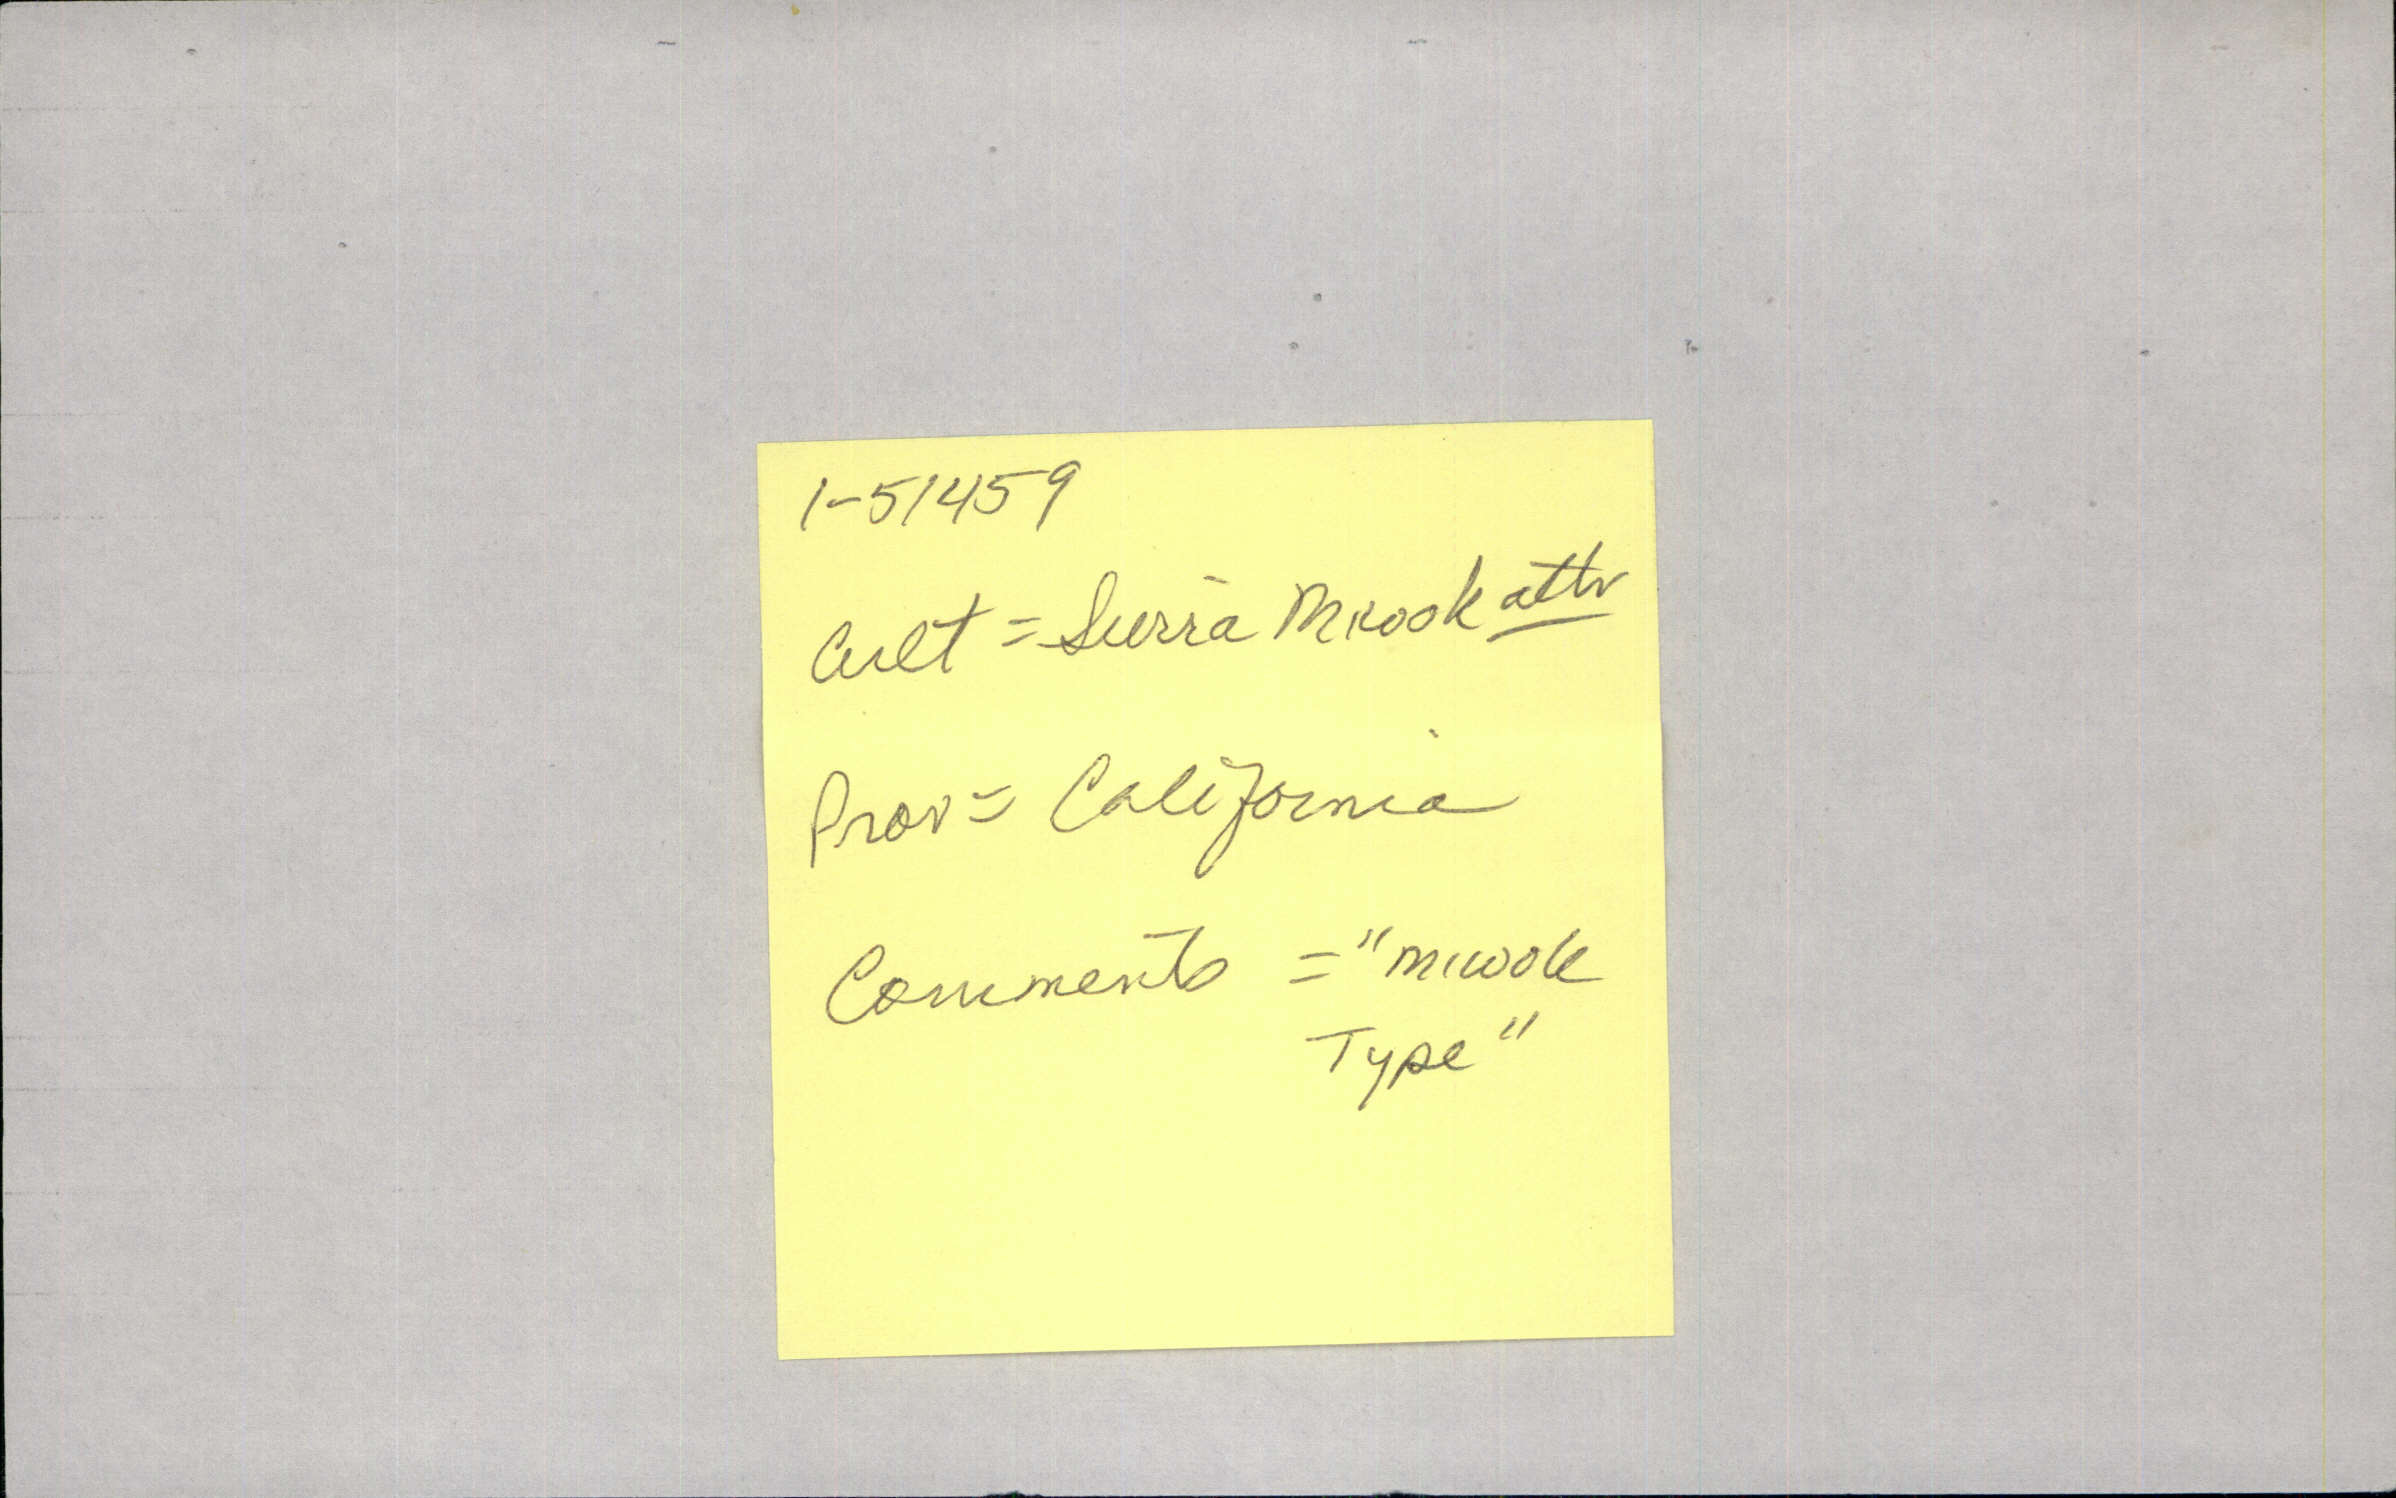 1-51459
Cult = Sierra Miwok attr
Prov = California
Comments = "Miwok
Type"